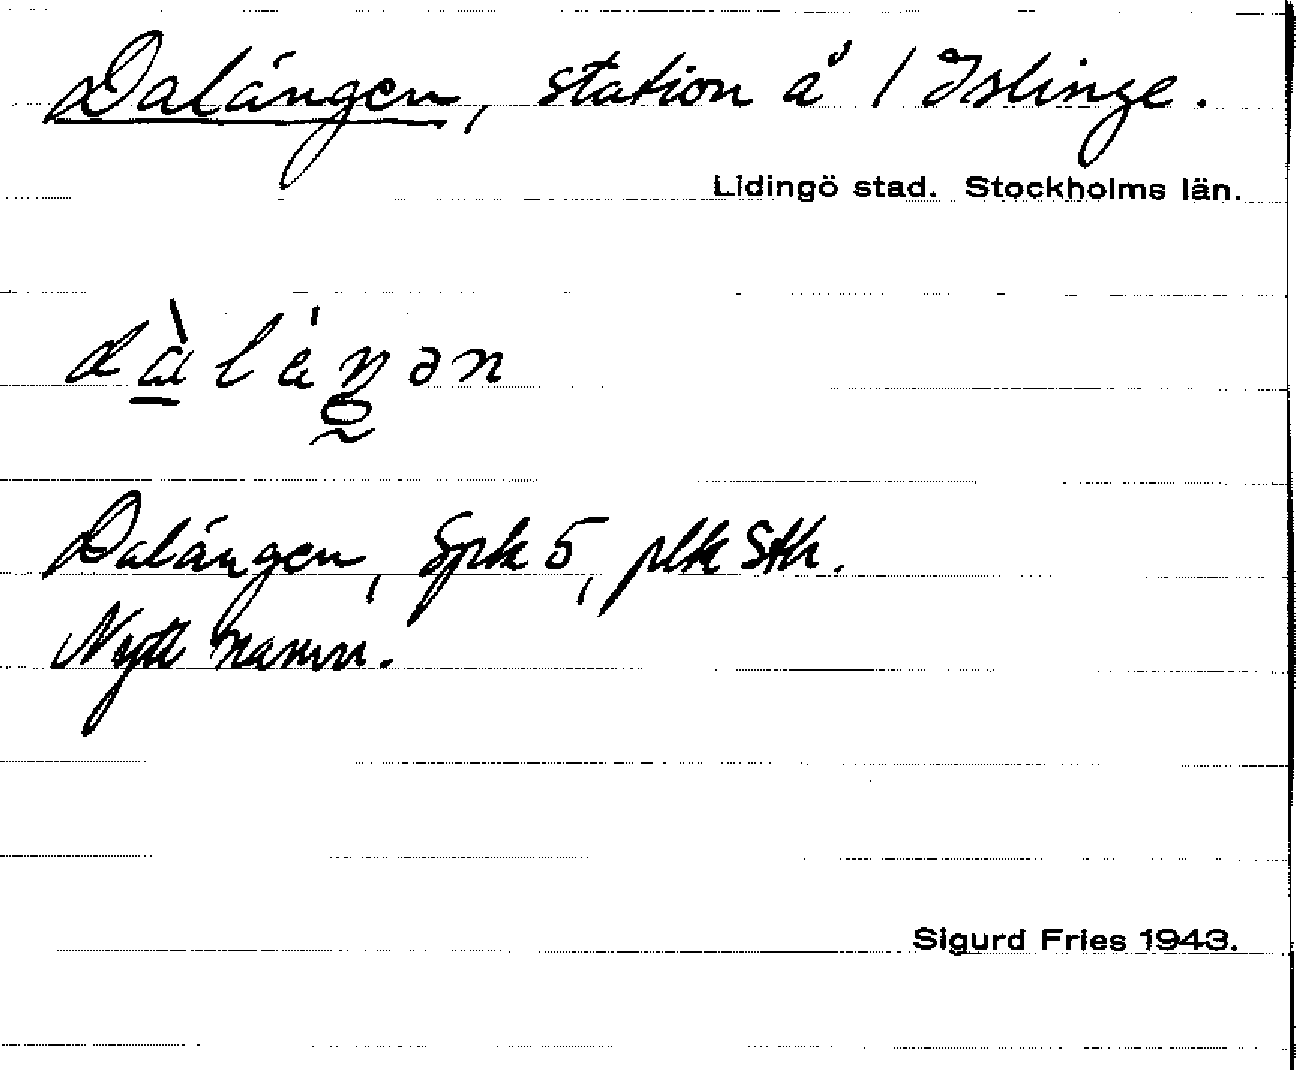 Dalängen, station å 1 Islinge.
Lidingö stad. Stockholms län.
dàläŋən
Dalängen, Spk 5, plk Sth.
Nytt namn.
Sigurd Fries 1943.